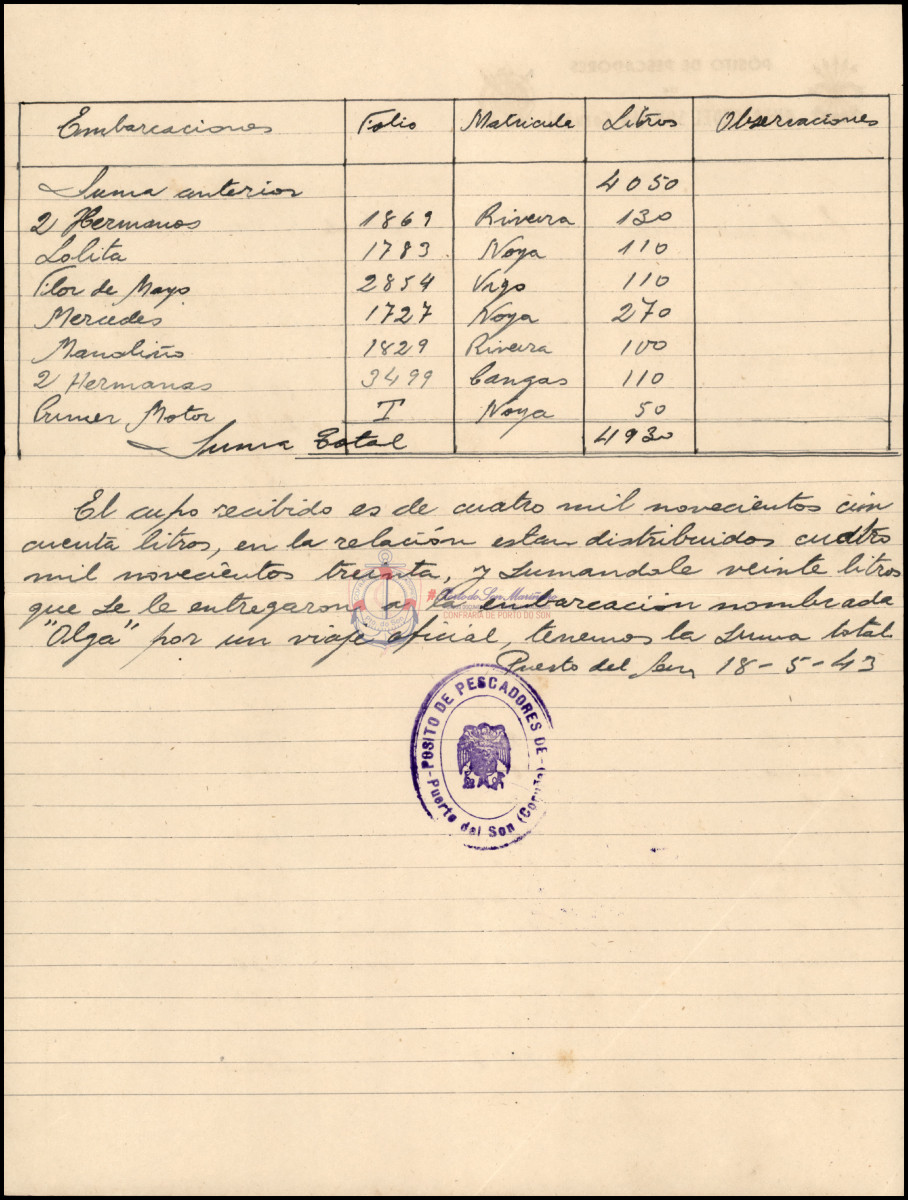 Embarcaciones Folio Matricula Litros Observaciones
Suma anterior 4050
2 Hermanos 1869 Riveira 130
Lolita 1783 Noya 110
Flor de Mayo 2854 Vigo 110
Mercedes 1727 Noya 270
Manoliño 1829 Riveira 100
2 Hermanas 3499 Cangas 110
Primer Motor I Noya 50
Suma Total 4930
El cupo recibido es de cuatro mil novecientos cin
cuenta litros, en la relación estan distribuidos cuatro
mil novecientos treinta, y sumandole veinte litros
que se le entregaron a la embarcacion nombrada
"Olga" por un viaje oficial, tenemos la suma total.
Puerto del Son, 18-5-43
Porto do Son
CONFRARÍA DE PORTO DO SON
POSITO DE PESCADORES DE
Puerto del Son (Coruña)
POSITO DE PESCADORES